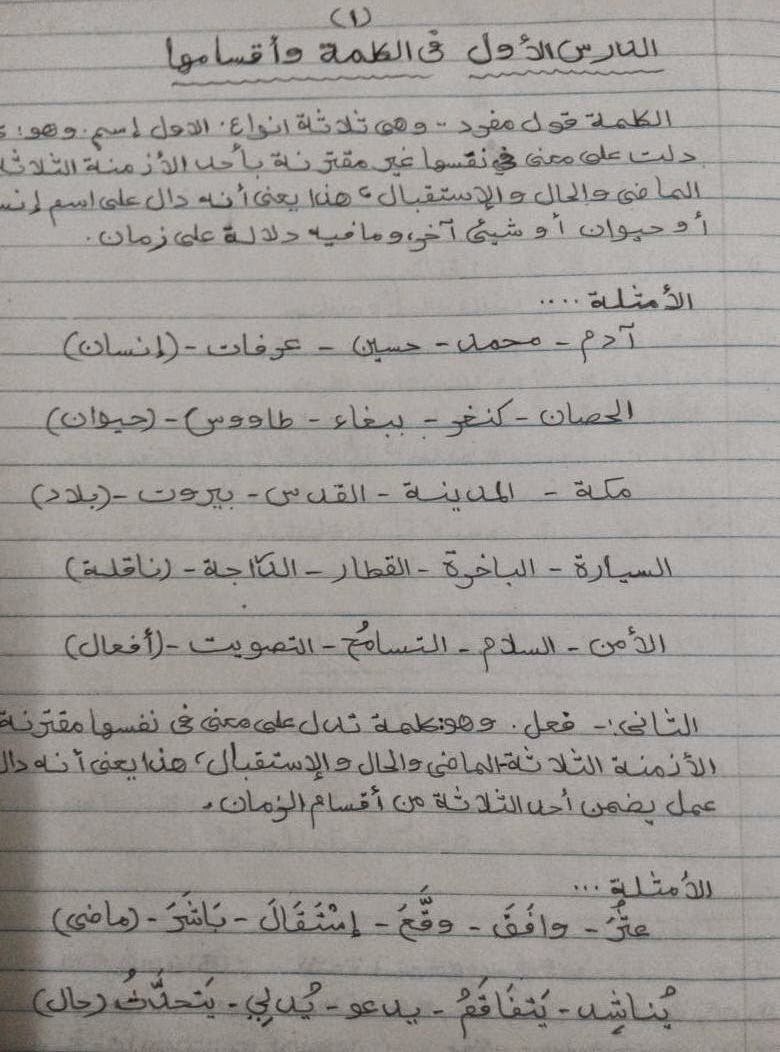 (١)
الدارس الأول في الكلمة وأقسامها
الكلمة قول مفرد - وهي ثلاثة انواع. الاول إسم. وهو:
دلت على معنى في نفسها غير مقترنة بأحد الأزمنة الثلاثة
الماضي والحال والإستقبال، هذا يعنى أنه دال على اسم إنسـ
أو حيوان أو شيئ آخر، ومافيه دلالة على زمان.
الأمثلة ....
آدم - محمد - حسين - عرفات - (إنسان)
الحصان - كنغر - ببغاء - طاووس - (حيوان)
مكة - المدينة - القدس - بيروت - (بلاد)
السيارة - الباخرة - القطار - الدّاجة - (ناقلة)
الأمن - السلام - التسامُح - التصويت - (أفعال)
الثاني :- فعل. وهو: كلمة تدل على معنى في نفسها مقترنة
الأزمنة الثلاثة - الماضي والحال والإستقبال، هذا يعنى أنه دال
عمل يضمن أحد الثلاثة من أقسام الزمان.
الأمثلة ...
وافَقَ - وقَّعَ - إسْتَقَالَ - بَاشَرَ - (ماضى)
يُناشِد - يَتفَاقَمُ - يدعو - يُدلِي - يَتحدَّثُ (حال)